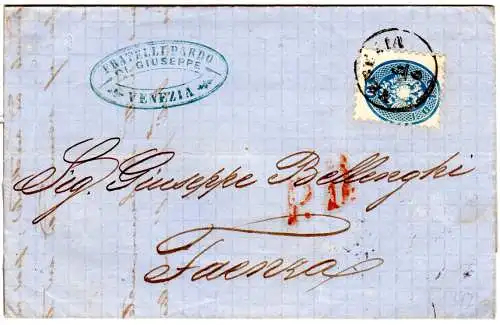 FRATELLI PARDO
DI GIUSEPPE
VENEZIA
VENEZIA
Sig. Giuseppe Bellenghi
P.D.
Faenza